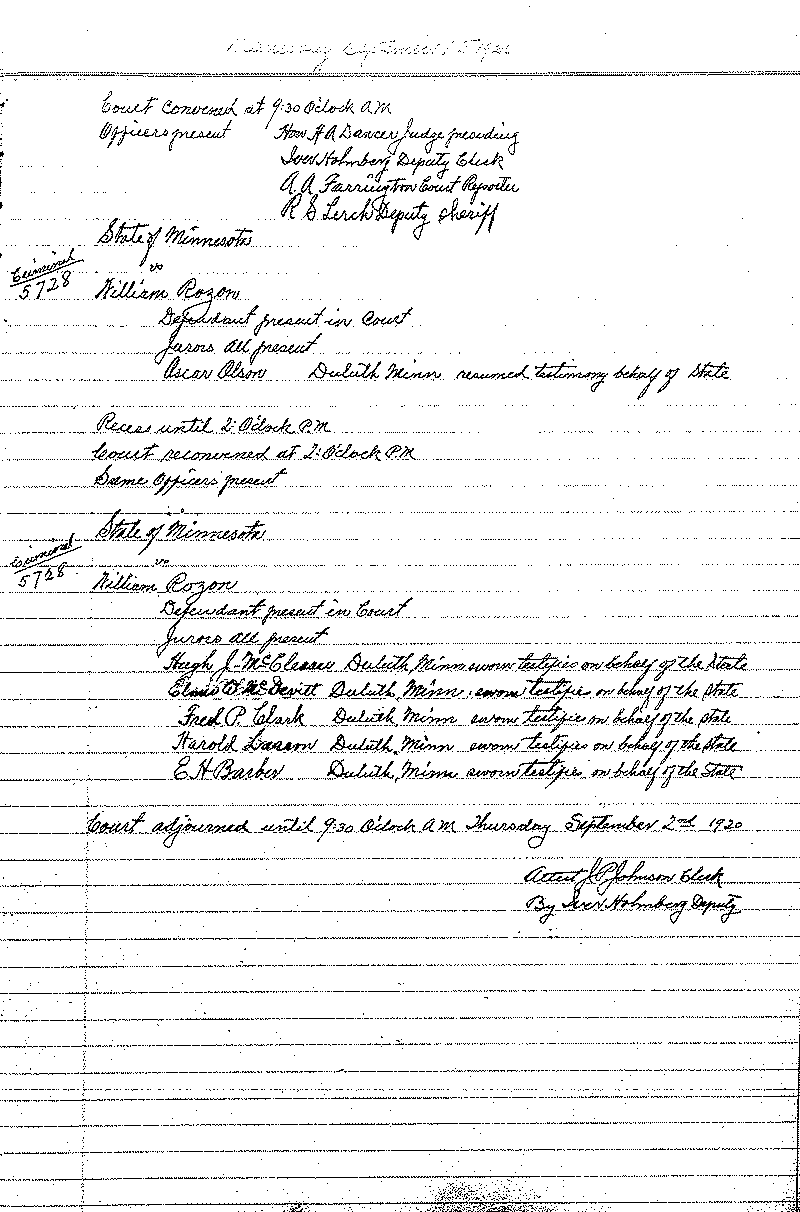 Wednesday September 1st 1920
Court convened at 9:30 O'clock A.M.
Officers present Hon H A Dancer Judge presiding
Iver Holmberg Deputy Clerk
A. A. Farrington Court Reporter
R S Lerch Deputy Sheriff
State of Minnesota
vs
Criminal
5728
William Rozon
Defendant present in Court
Jurors all present
Oscar Olson Duluth Minn resumed testimony behalf of State
Recess until 2: O'clock P.M
Court reconvened at 2: O'clock P.M
Same Officers present
State of Minnesota
vs
Criminal
5728
William Rozon
Defendant present in Court
Jurors all present
Hugh J. Duluth Minn sworn testifies on behalf of the State
McDevitt Duluth, Minn. sworn testifies on behalf of the State
Fred P. Clark Duluth Minn sworn testifies on behalf of the State
Harold Duluth Minn sworn testifies on behalf of the State
E H Barber Duluth, Minn sworn testifies on behalf of the State
Court adjourned until 9:30 O'clock A.M. Thursday September 2nd 1920
Attest J P Johnson Clerk
By Iver Holmberg Deputy